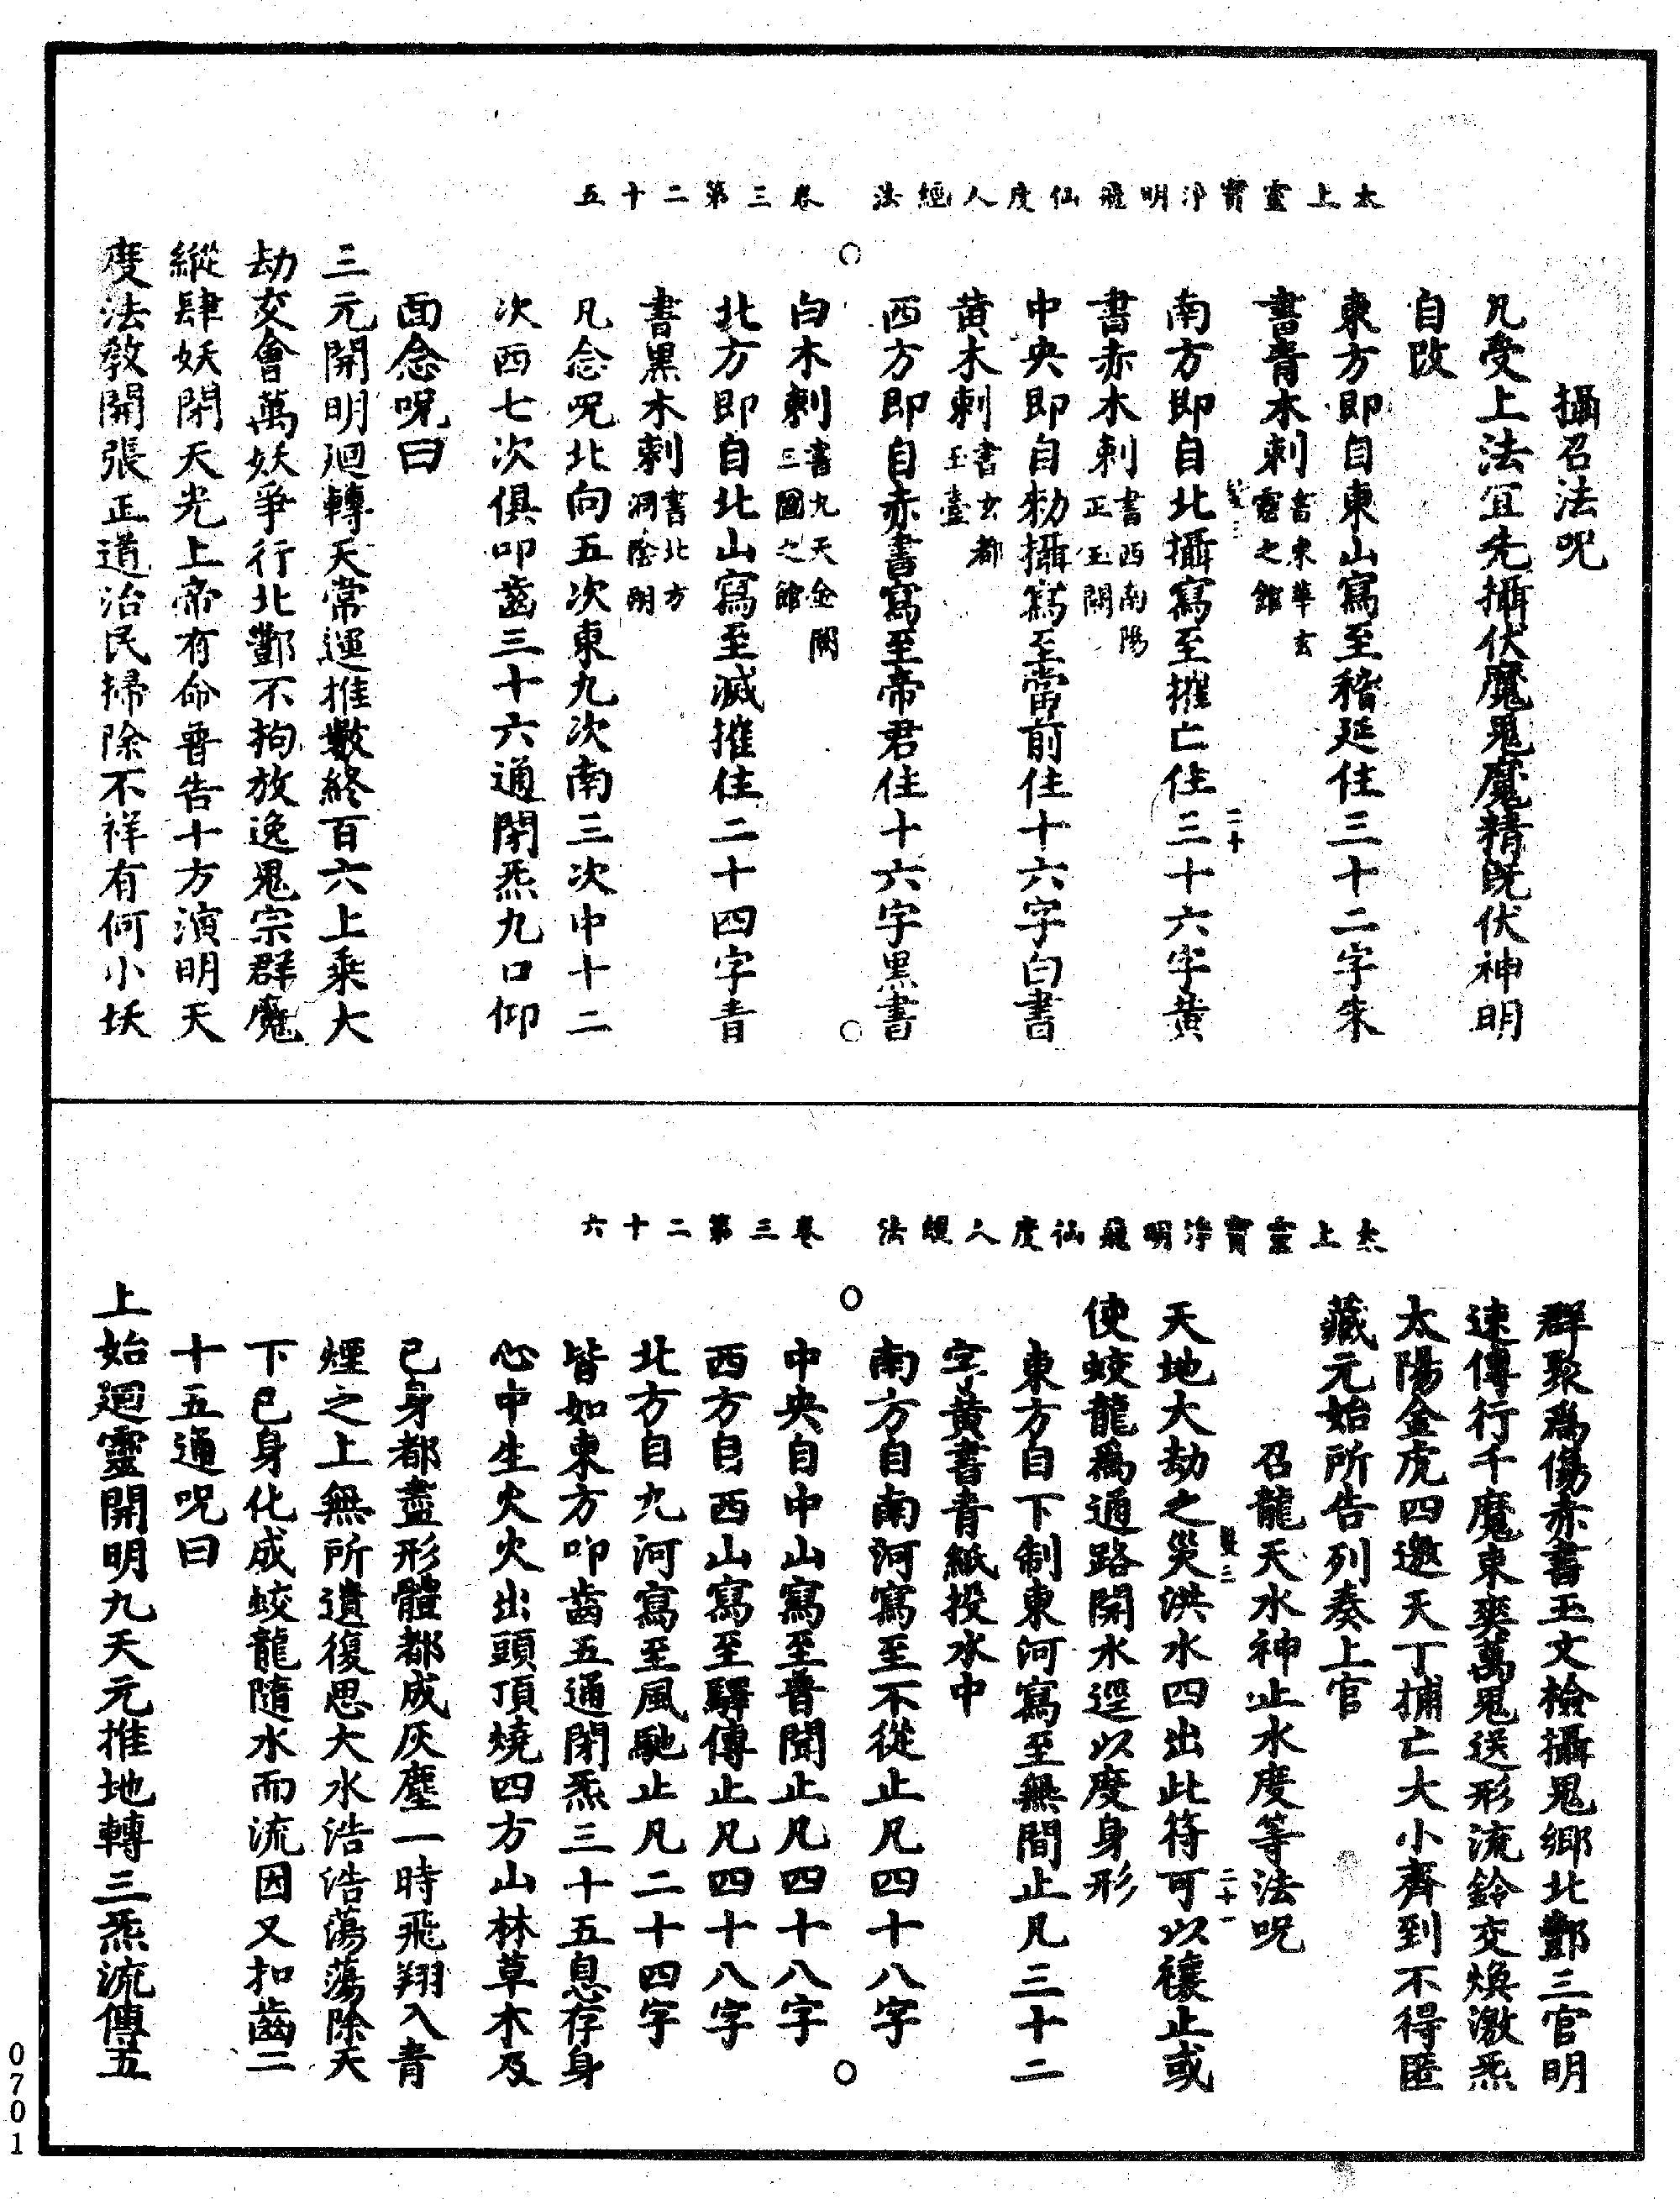 太上靈寶淨明飛仙度人經法　卷三第二十五
攝召法呪
凡受上法宜先攝伏魔鬼魔精旣伏神明
自改
東方即自東山寫至稽延住三十二字朱
書青木刺書東華玄靈之館
南方即自北攝寫至摧亡住三十六字黃
書赤木刺書西南陽正玉闕
二十
中央即自勑攝寫至當前住十六字白書
黃木刺書玄都玉臺
西方即自赤書寫至帝君住十六字黑書
白木刺書九天金闕三圖之館
北方即自北山寫至滅摧住二十四字青
書黑木刺書北方洞陰朔
凡念呪北向五次東九次南三次中十二
次西七次俱叩齒三十六通閉炁九口仰
面念呪曰
三元開明廻轉天常運推數終百六上乘大
劫交會萬妖爭行北酆不拘放逸鬼宗群魔
縱肆妖閉天光上帝有命普告十方演明天
度法教開張正道治民掃除不祥有何小妖
太上靈寶淨明飛仙度人經法　卷三第二十六
群聚爲傷赤書玉文檢攝鬼鄉北酆三官明
速傳行千魔束爽萬鬼送形流鈴交煥激炁
太陽金虎四邀天丁捕亡大小齊到不得匿
藏元始所告列奏上官
召龍天水神止水度等法呪
三
二十一
天地大劫之災洪水四出此符可以禳止或
使蛟龍爲通路開水逕以度身形
東方自下制東河寫至無間止凡三十二
字黃書青紙投水中
南方自南河寫至不從止凡四十八字
中央自中山寫至普聞止凡四十八字
西方自西山寫至驛傳止凡四十八字
北方自九河寫至風馳止凡二十四字
皆如東方叩齒五通閉炁三十五息存身
心中生火火出頭頂燒四方山林草木及
己身都盡形體都成灰塵一時飛翔入青
煙之上無所遺復思大水浩浩蕩蕩除天
下己身化成蛟龍隨水而流因又扣齒二
十五通呪曰
上始廻靈開明九天元推地轉三炁流傳五
0701